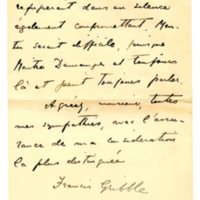 refugierait dans un silence
également compromettant. Mais
ce serait difficile, puisque
Maître Demange est toujours
là et peut toujours parler
Agréez, monsieur, toutes
mes sympathies, avec l'assu-
rance de ma considération
la plus distinguée
Francis Gribble